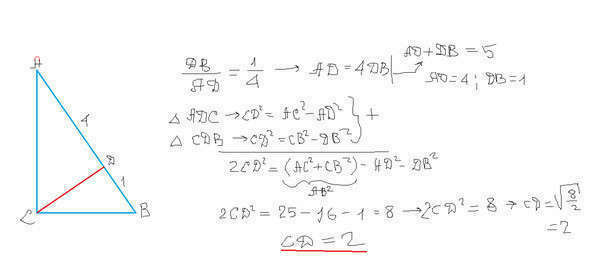 A
4
D
1
C
B
DB/AD = 1/4 → AD = 4DB
AD + DB = 5
AD = 4 ; DB = 1
△ ADC → CD² = AC² - AD²
△ CDB → CD² = CB² - DB²
+
2CD² = (AC² + CB²) - AD² - DB²
AB²
2CD² = 25 - 16 - 1 = 8 → 2CD² = 8 → CD = √8/2
= 2
CD = 2